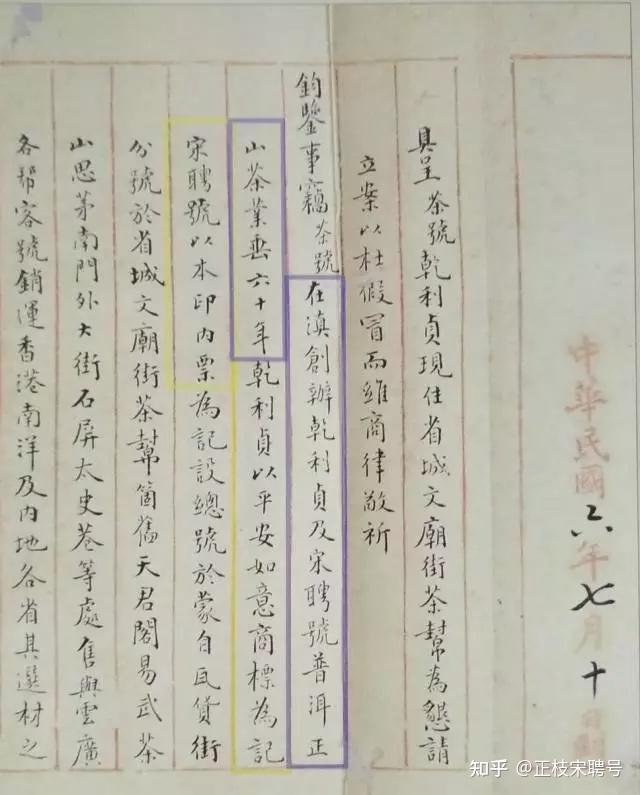 中華民國六年七月十日
具呈茶號乾利貞現住省城文廟街茶幫為懇請
立案以杜假冒而維商律敬祈
鈞鑒事竊茶號在滇創辦乾利貞及宋聘號普洱正
山茶業垂六十年乾利貞以平安如意商標為記
宋聘號以本印內票為記設總號於蒙自瓦貨街
分號於省城文廟街茶幫箇舊天君閣易武茶
山思茅南門外大街石屏太史巷等處售與雲廣
各幫客號銷運香港南洋及內地各省其選材之
知乎 @正枝宋聘号